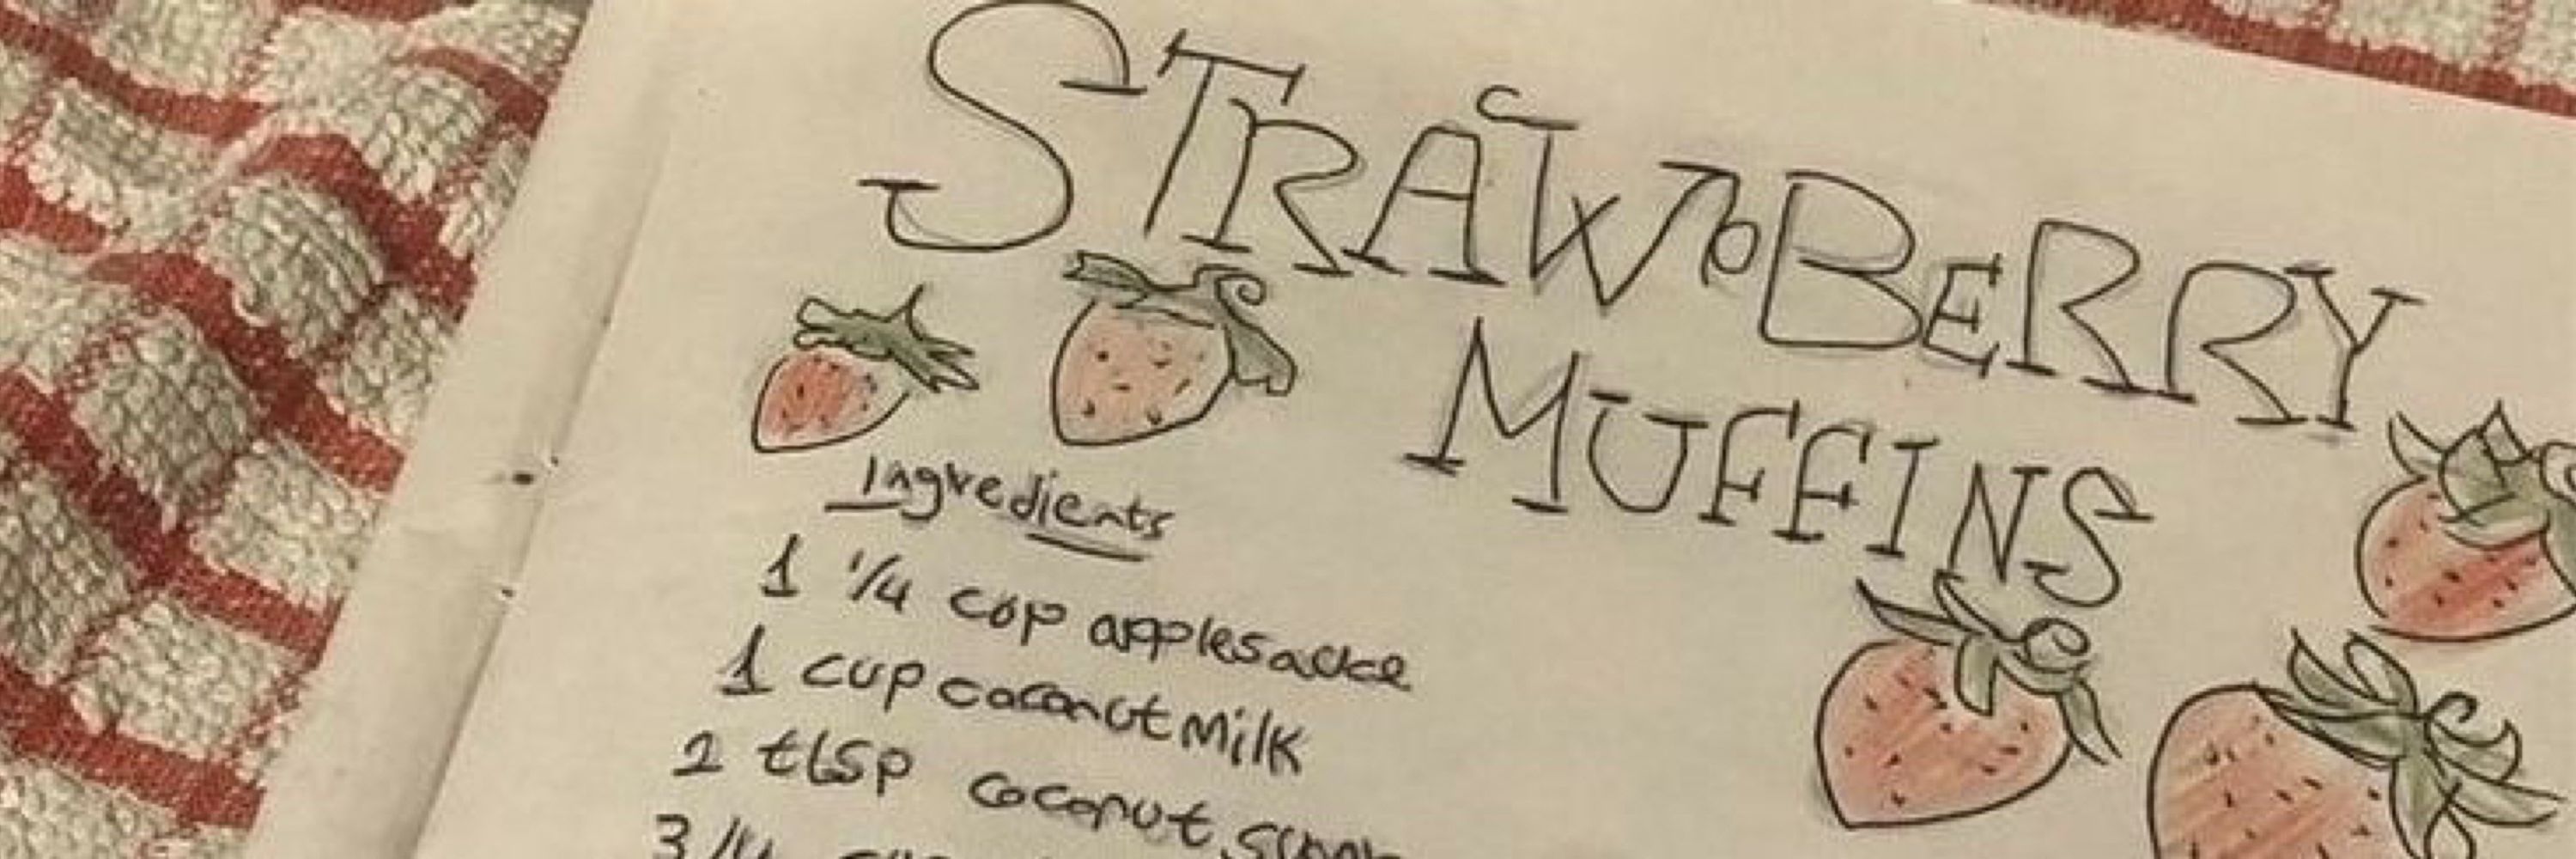 STRAWBERRY
MUFFINS
Ingredients
1 1/4 cup applesauce
1 cup coconut Milk
2 tbsp coconut
3/4